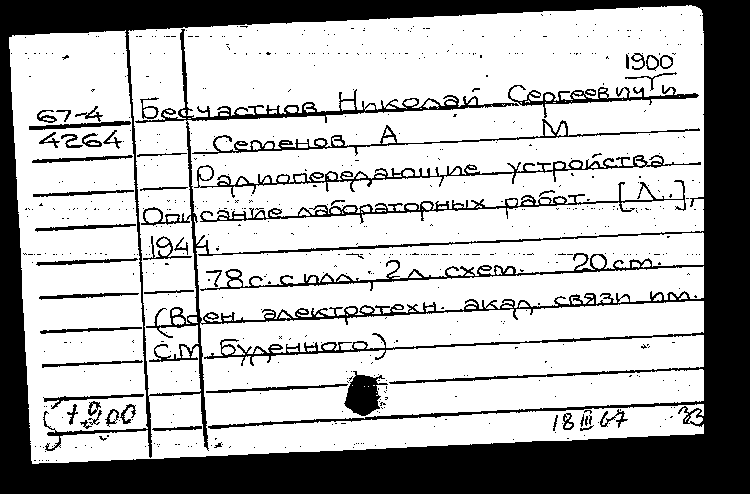 1900
67-4 Бесчастнов, Николай Сергеевич, и
4264 Семенов, А М
Радиопередающие устройства.
Описание лабораторных работ. [Л.],
1944.
78 с. с илл.; 2 л. схем. 20 см.
(Воен. электротехн. акад. связи им.
С.М. Буденного)
+200
18 III 67